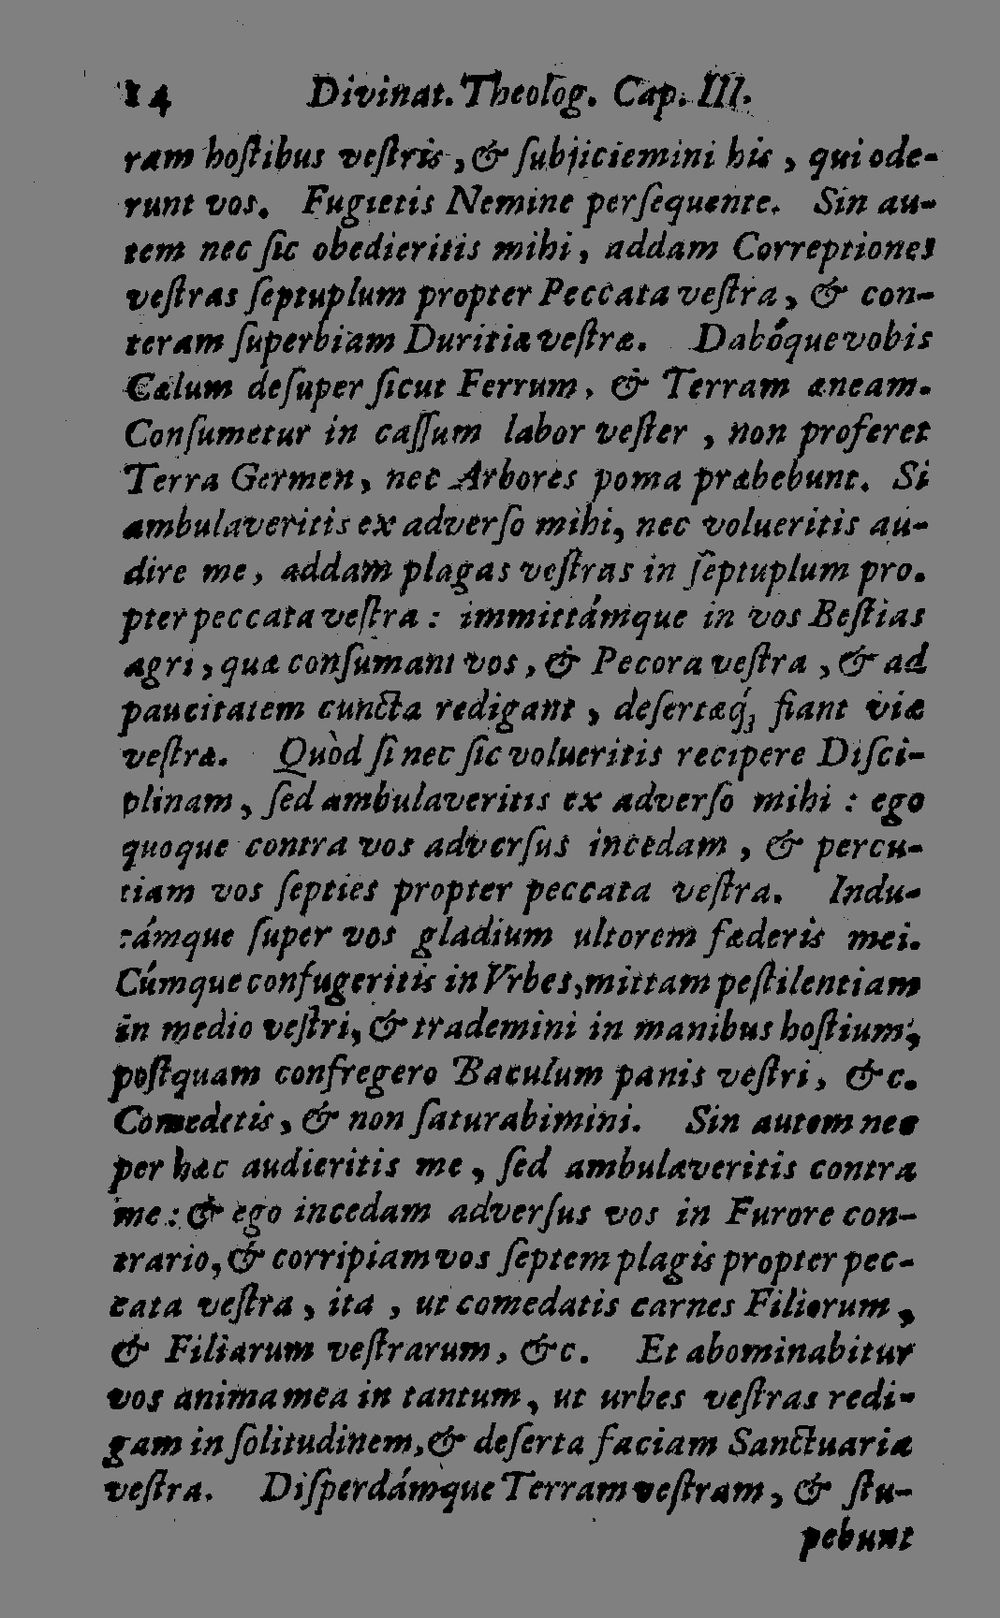 14 Divinat. Theolog. Cap. III.
ram hoſtibus veſtris, & ſubjiciemini his, qui ode-
runt vos. Fugietis Nemine perſequente. Sin au-
tem nec ſic obedieritis mihi, addam Correptiones
veſtras ſeptuplum propter Peccata veſtra, & con-
teram ſuperbiam Duritiæ veſtræ. Dabóque vobis
Cælum deſuper ſicut Ferrum, & Terram æneam.
Conſumetur in caſſum labor veſter, non proferet
Terra Germen, nec Arbores poma præbebunt. Si
ambulaveritis ex adverſo mihi, nec volueritis au-
dire me, addam plagas veſtras in ſeptuplum pro-
pter peccata veſtra: immittámque in vos Beſtias
agri, quæ conſumant vos, & Pecora veſtra, & ad
paucitatem cuncta redigant, deſertæq́; fiant viæ
veſtræ. Quòd ſi nec ſic volueritis recipere Diſci-
plinam, ſed ambulaveritis ex adverſo mihi: ego
quoque contra vos adverſus incedam, & percu-
tiam vos ſepties propter peccata veſtra. Indu-
cámque ſuper vos gladium ultorem fæderis mei.
Cúmque confugeritis in Vrbes, mittam peſtilentiam
in medio veſtri, & trademini in manibus hoſtium,
poſtquam confregero Baculum panis veſtri, &c.
Comedetis, & non ſaturabimini. Sin autem nec
per hæc audieritis me, ſed ambulaveritis contra
me: & ego incedam adverſus vos in Furore con-
trario, & corripiam vos ſeptem plagis propter pec-
cata veſtra, ita, ut comedatis carnes Filiorum,
& Filiarum veſtrarum, &c. Et abominabitur
vos anima mea in tantum, ut urbes veſtras redi-
gam in ſolitudinem, & deſerta faciam Sanctuaria
veſtra. Diſperdámque Terram veſtram, & ſtu-
pebunt